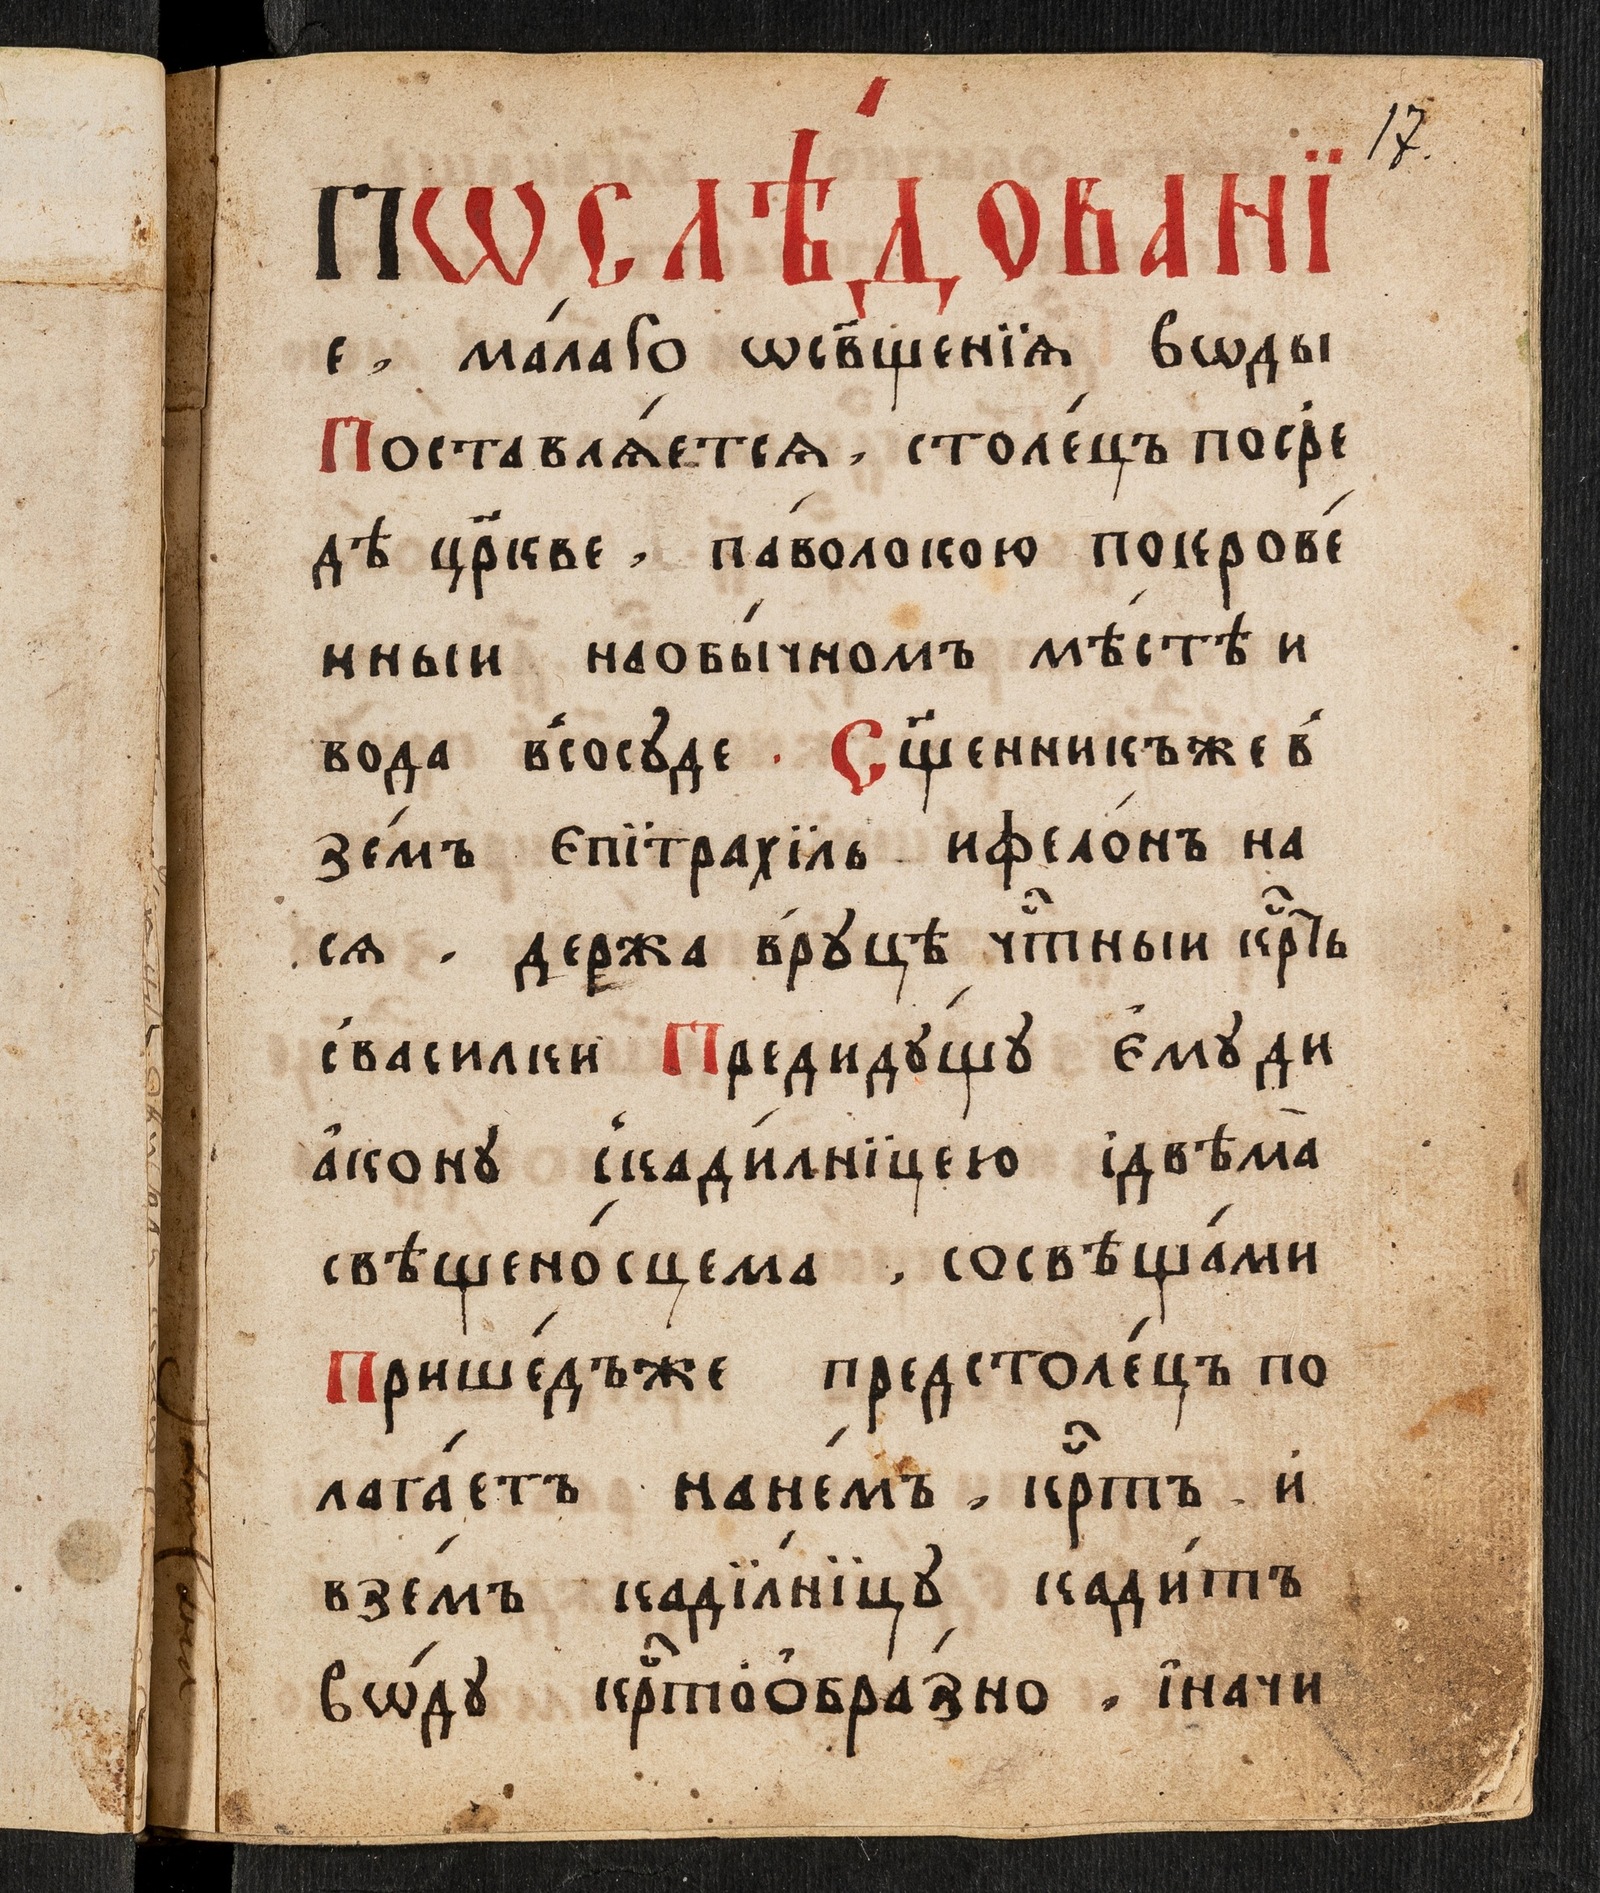 17.
Пѡслѣ́дованї
е, ма́лаго ѡсв҃щенїѧ вѡды
Поставлѧ́етсѧ, столе́цъ посре
дѣ цр҃кве, па́волокою покрове́
нныи наобы́чномъ мѣ́стѣ и
вода в҆сосꙋде. Сщ҃енникъже в҆
зе́мъ Єпїтрахїль ифело́нъ на
сѧ, держа в҆рꙋцѣ чⷭ҇тныи крⷭ҇тъ
с҆василки Предидꙋ́щꙋ є҆мꙋ ди
а҆конꙋ с҆кади́лнїцею ідвѣма̀
свѣщено́сцема, сосвѣща́ми
Прише́дъже предстоле́цъ по
лага́етъ нане́мъ, крⷭ҇тъ. и҆
взе́мъ кадїлнїцꙋ кади́тъ
вѡ́дꙋ крⷭ҇тоѻ҆бра́зно, і҆начи